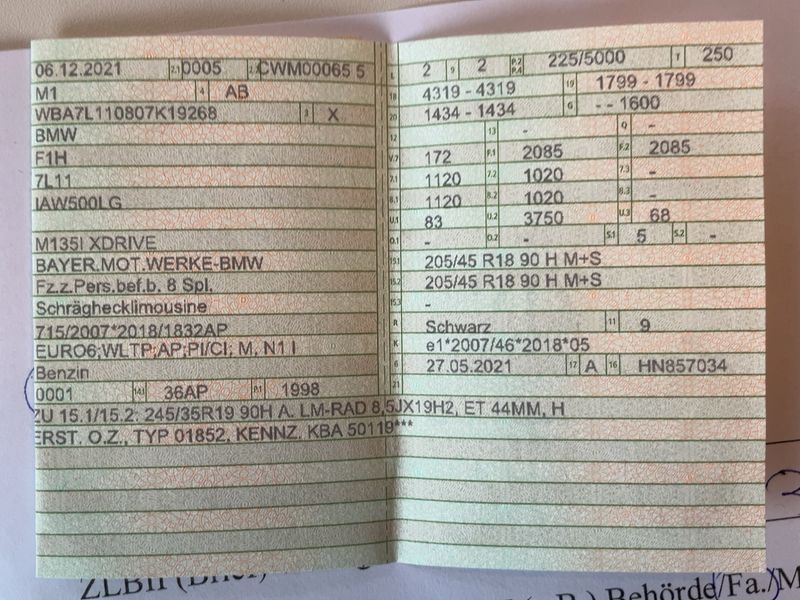 06.12.2021 2.1 0005 2.2 CWM00065 5
M1 4 AB
WBA7L110807K19268 3 X
BMW
F1H
7L11
IAW500LG
M135I XDRIVE
BAYER.MOT.WERKE-BMW
Fz.z.Pers.bef.b. 8 Spl.
Schräghecklimousine
715/2007*2018/1832AP
EURO6;WLTP;AP;PI/CI; M, N1 I
Benzin
0001 14.1 36AP P.1 1998
L 2 9 2 P.2 P.4 225/5000 T 250
18 4319 - 4319 19 1799 - 1799
20 1434 - 1434 G - - 1600
12 13 - Q -
V.7 172 F.1 2085 F.2 2085
7.1 1120 7.2 1020 7.3 -
8.1 1120 8.2 1020 8.3 -
U.1 83 U.2 3750 U.3 68
O.1 - O.2 - S.1 5 S.2 -
15.1 205/45 R18 90 H M+S
15.2 205/45 R18 90 H M+S
15.3 -
R Schwarz 11 9
K e1*2007/46*2018*05
6 27.05.2021 17 A 16 HN857034
21
ZU 15.1/15.2: 245/35R19 90H A. LM-RAD 8,5JX19H2, ET 44MM, H
ERST. O.Z., TYP 01852, KENNZ. KBA 50119***
ZLBII (Brief)
Behörde/Fa./M